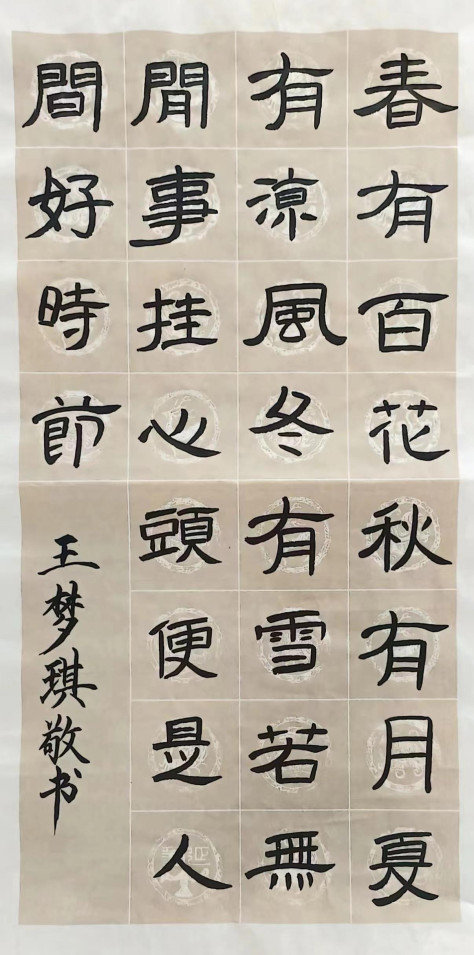 春有百花秋有月夏
有涼風冬有雪若無
閒事挂心頭便是人
間好時節
王梦琪敬书